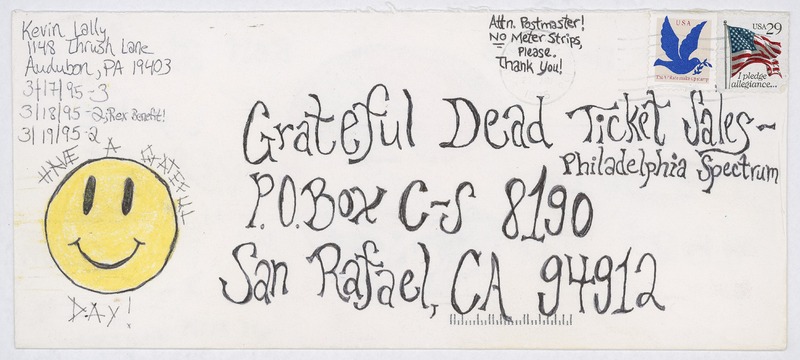 Kevin Lally
1148 Thrush Lane
Audubon, PA 19403
3/17/95-3
3/18/95-2; Rex Benefit!
3/19/95-2
HAVE A GRATEFUL
DAY!
Attn. Postmaster!
NO Meter Strips,
Please.
Thank You!
USA
USA 29
I pledge
allegiance...
Grateful Dead Ticket Sales-
Philadelphia Spectrum
P.O. Box C-S 8190
San Rafael, CA 94912